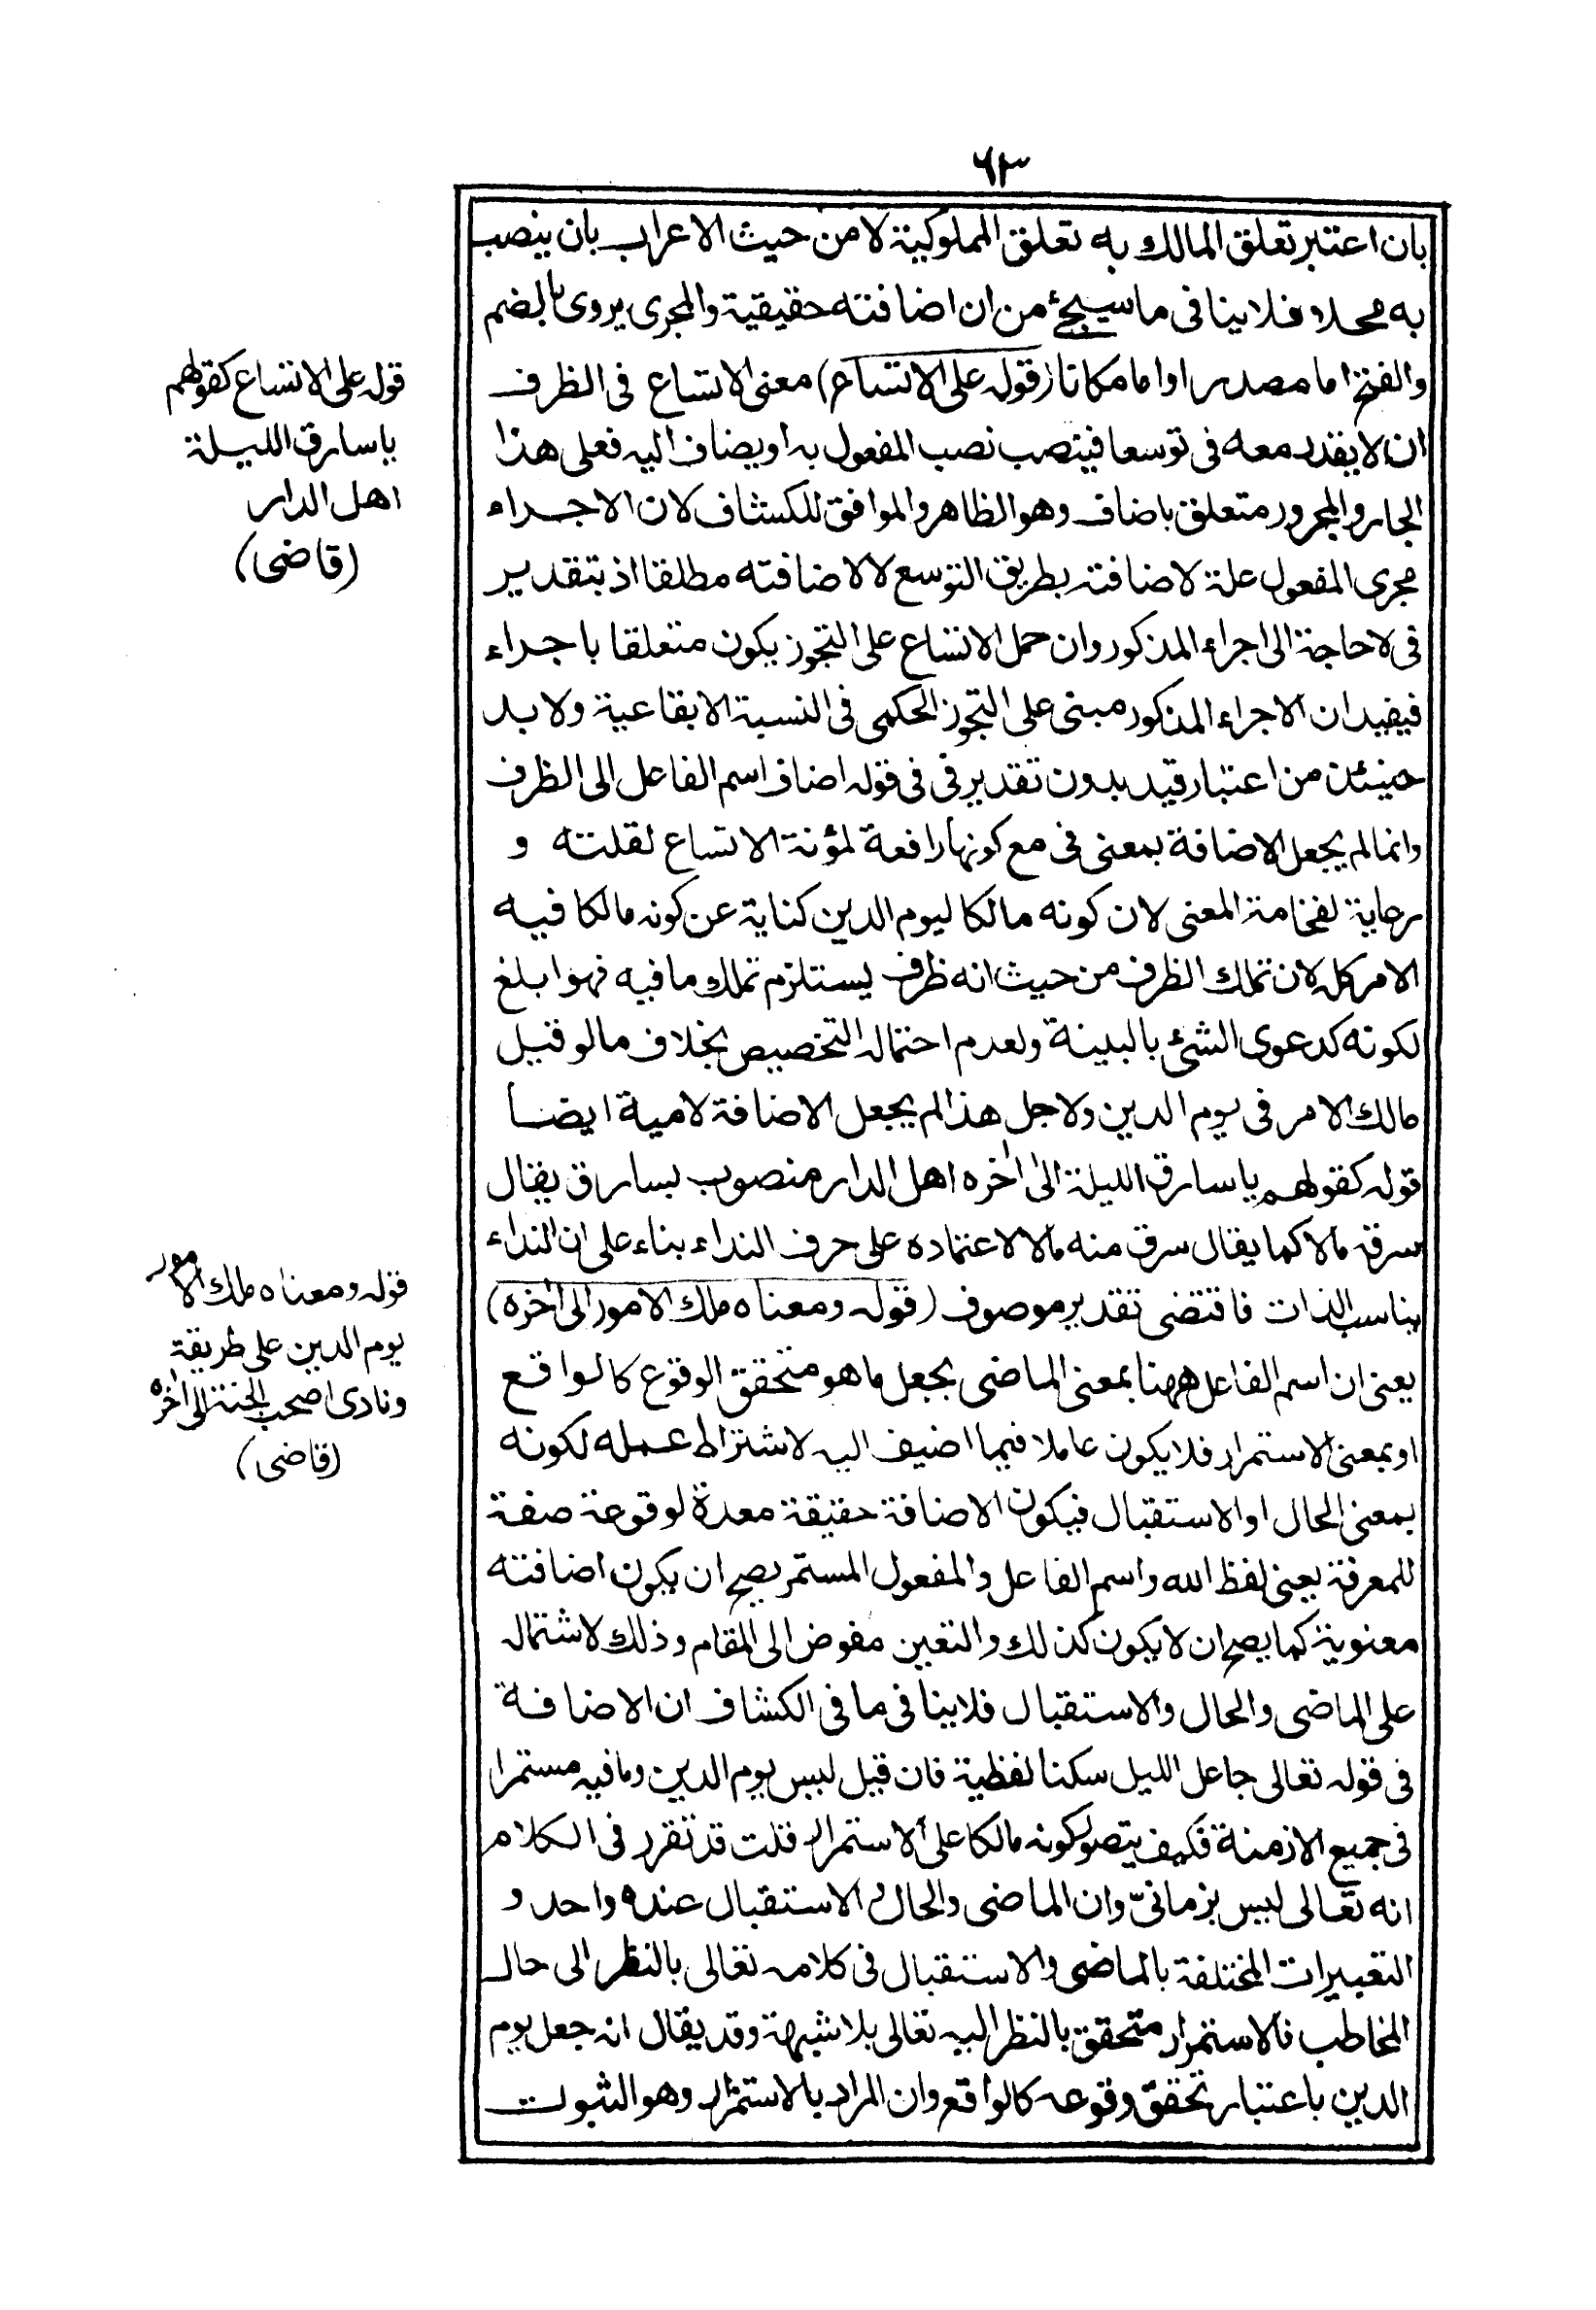 ٦٣
بان اعتبر تعلق المالك به تعلق المملوكية لا من حيث الاعراب بان ينصب
به محلا فلا ينافى ما سيجئ من ان اضافته حقيقية والمجرى يروى بالضم
والفتح اما مصدرا واما مكانا (قوله على الاتساع) معنى الاتساع فى الظرف
ان لا يقدر معه فى توسعا فينصب نصب المفعول به او يضاف اليه فعلى هذا
الجار والمجرور متعلق باضاف وهو الظاهر والموافق للكشاف لان الاجراء
مجرى المفعول علة لاضافته بطريق التوسع لا لاضافته مطلقا اذ بتقدير
فى لا حاجة الى اجراء المذكور وان حمل الاتساع على التجوز يكون متعلقا باجراء
فيفيد ان الاجراء المذكور مبنى على التجوز الحكمى فى النسبة الايقاعية ولا بد
حينئذ من اعتبار قيد بدون تقدير فى فى قوله اضاف اسم الفاعل الى الظرف
وانما لم يجعل الاضافة بمعنى فى مع كونها رافعة لمؤنة الاتساع لقلته و
رعاية لفخامة المعنى لان كونه مالكا ليوم الدين كناية عن كونه مالكا فيه
الامر كله لان تملك الظرف من حيث انه ظرف يستلزم تملك ما فيه فهو ابلغ
لكونه كدعوى الشئ بالبينة ولعدم احتماله التخصيص بخلاف ما لو قيل
مالك الامر فى يوم الدين ولاجل هذا لم يجعل الاضافة لامية ايضا
قوله كقولهم يا سارق الليلة الى اخره اهل الدار منصوب بسارق يقال
سرقه مالا كما يقال سرق منه مالا لاعتماده على حرف النداء بناء على ان النداء
يناسب الذات فاقتضى تقدير موصوف (قوله ومعناه ملك الامور الى اخره)
يعنى ان اسم الفاعل ههنا بمعنى الماضى بجعل ما هو متحقق الوقوع كالواقع
او بمعنى الاستمرار فلا يكون عاملا فيما اضيف اليه لاشتراط عمله لكونه
بمعنى الحال او الاستقبال فيكون الاضافة حقيقة معدة لوقوعة صفة
للمعرفة يعنى لفظ الله واسم الفاعل والمفعول المستمر يصح ان يكون اضافته
معنوية كما يصح ان لا يكون كذلك والتعين مفوض الى المقام وذلك لاشتماله
على الماضى والحال والاستقبال فلا ينافى ما فى الكشاف ان الاضافة
فى قوله تعالى جاعل الليل سكنا لفظية فان قيل ليس يوم الدين وما فيه مستمرا
فى جميع الازمنة فكيف يتصور كونه مالكا على الاستمرار قلت قد تقرر فى الكلام
انه تعالى ليس بزمانىّ وان الماضى والحال والاستقبال عنده واحد و
التعبيرات المختلفة بالماضى والاستقبال فى كلامه تعالى بالنظر الى حال
المخاطب فالاستمرار متحقق بالنظر اليه تعالى بلا شبهة وقد يقال انه جعل يوم
الدين باعتبار تحقق وقوعه كالواقع وان المراد بالاستمرار وهو الثبوت
قوله على الاتساع كقولهم
يا سارق الليلة
اهل الدار
(قاضى)
قوله ومعناه ملك الامور
يوم الدين على طريقة
ونادى اصحب الجنة الى اخره
(قاضى)